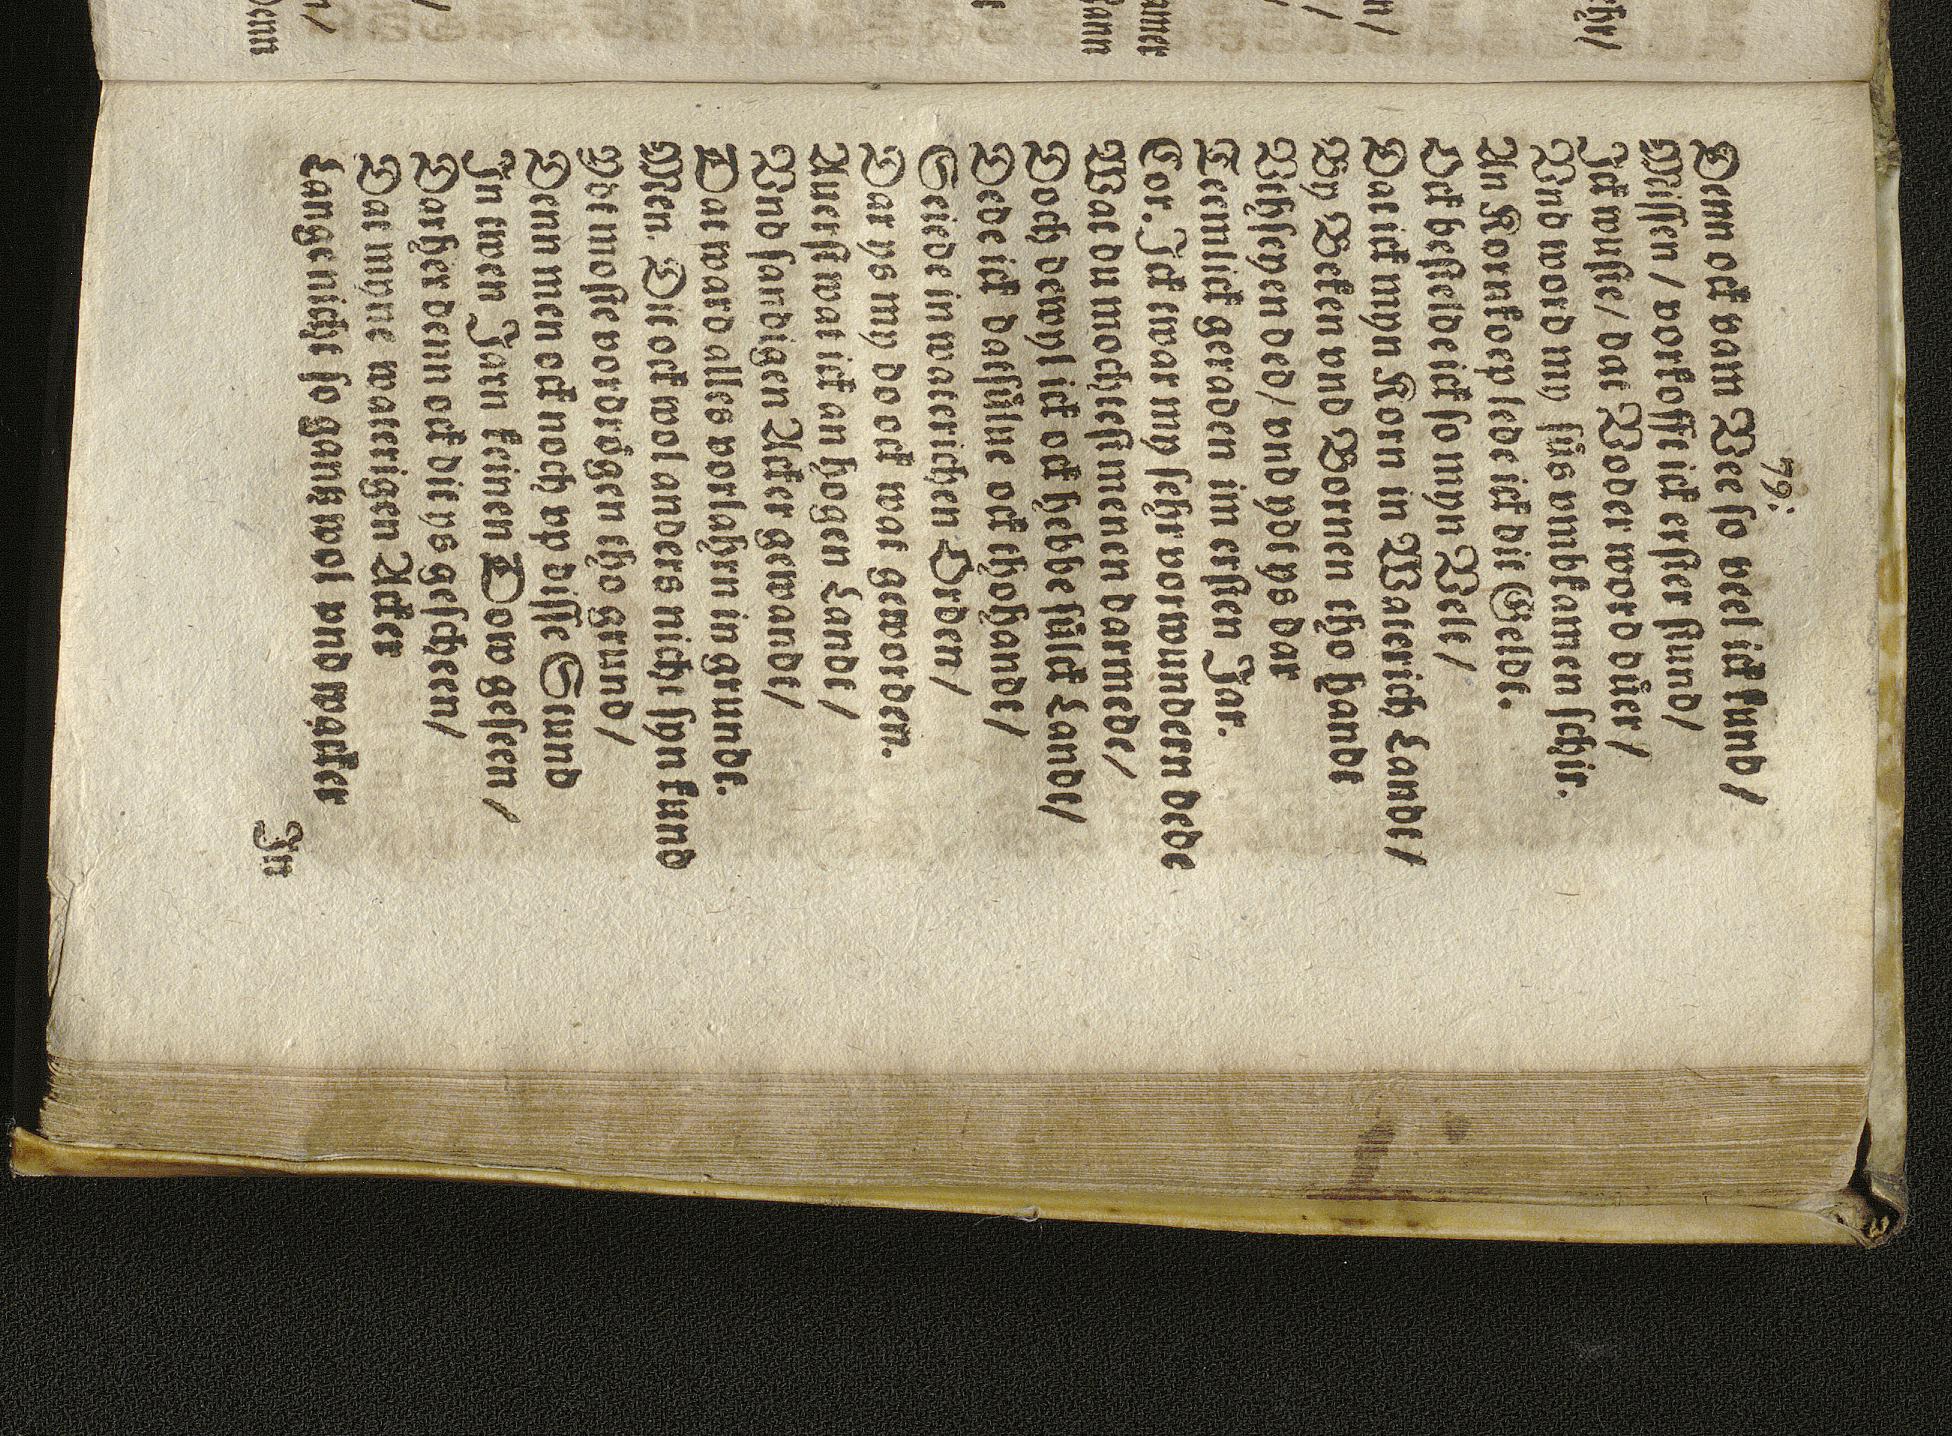 79.
Denn ock vam Vee so veel ick kund /
Missen / vorkofft ick erster stund /
Ick wuste / dat Voder word düer /
Vnd word my süs vmbkamen schir.
An Kornkoep lede ick dit Geldt.
Ick bestelde ick so myn Velt /
Dat ick myn Korn in Waterich Landt /
By Beken vnd Bornen tho handt
Vthseyen ded / vnd ydt ys dar
Teemlick geraden im ersten Jar.
Cor. Ick twar my sehr vorwundern dede
Wat du mochtest menen darmede /
Doch dewyl ick ock hebbe sülck Landt /
Dede ick datsülue ock thohandt /
Seiede in waterichen Orden /
Dar ys my do ock wat geworden.
Auerst wat ick an hogen Landt /
Vnd sandigen Acker gewandt /
Dat ward alles vorlahrn in grunde.
Men. Die ock wol anders nicht syn kund
Ydt moste vordrögen tho grund /
Denn men ock noch vp disse Stund
In twen Jarn keinen Dow geseen /
Darher denn ock dit ys gescheen /
Dat myne waterigen Acker
Lange nicht so gantz wol vnd wacker
In